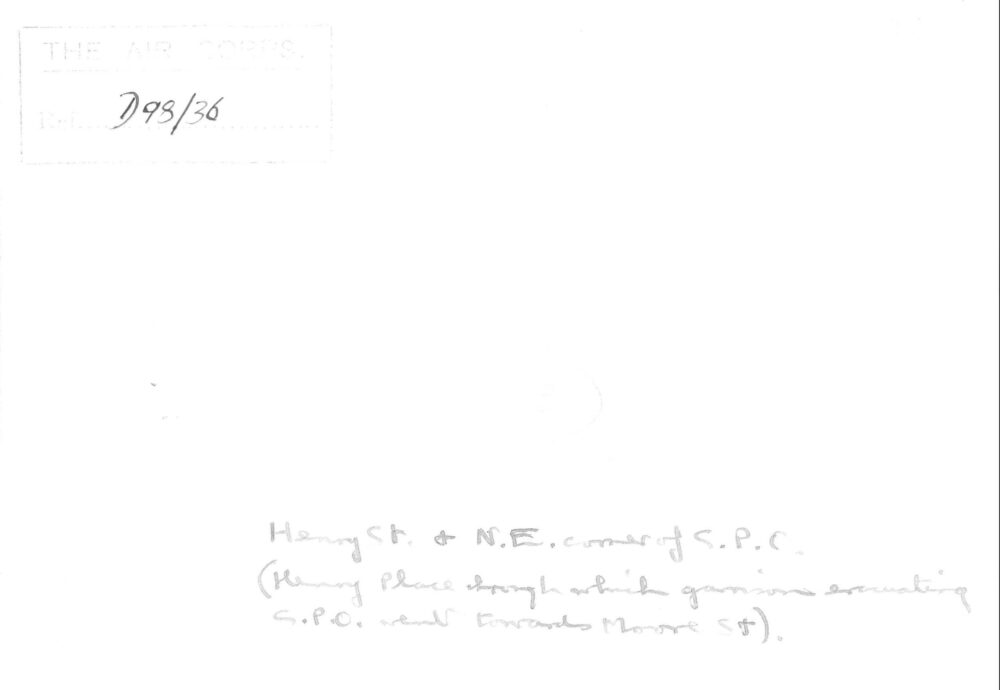 THE AIR CORPS.
Ref. D98/36
Henry St. & N.E. corner of G.P.O.
(Henry Place through which garrison evacuating
G.P.O. went towards Moore St).